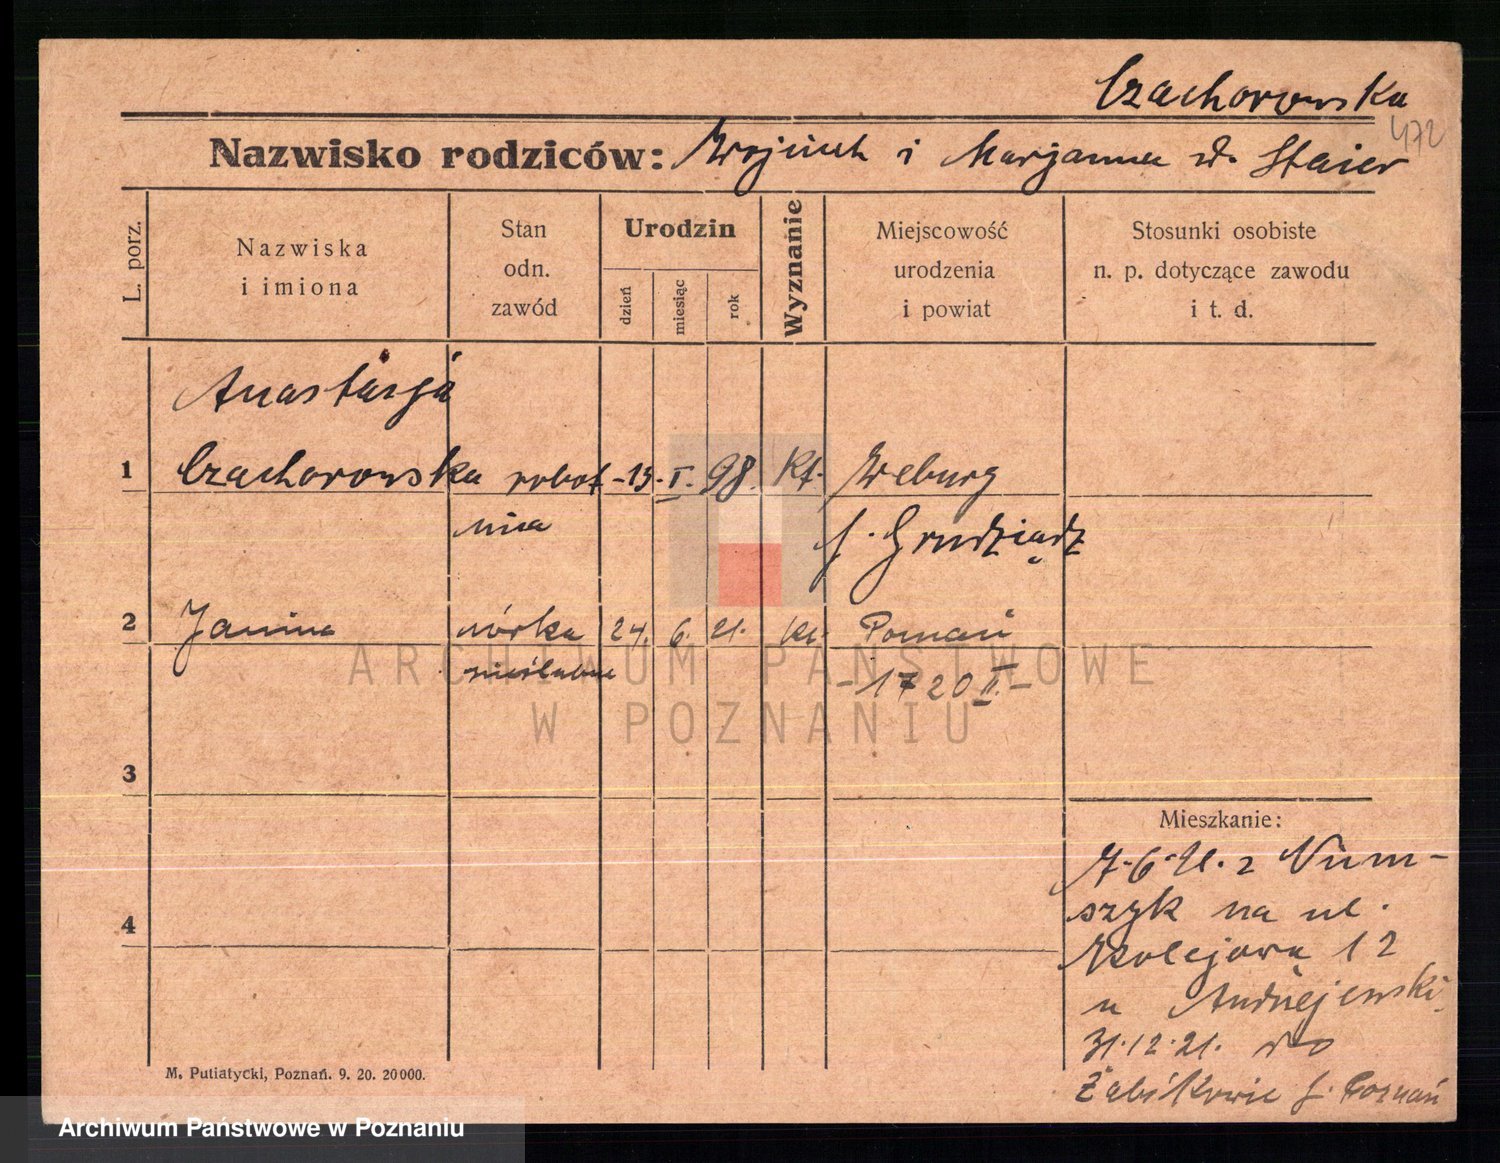 Czachorowska
472
Nazwisko rodziców: Wojciech i Marjanna z d. Staier
L. porz.
Nazwiska i imiona
Stan odn. zawód
Urodzin
dzień
miesiąc
rok
Wyznanie
Miejscowość urodzenia i powiat
Stosunki osobiste n. p. dotyczące zawodu i t. d.
Anastazja
1 Czachorowska robot - 13. I. 98. Kt. Weburg
nica f. Grudziądz
2 Janina córka 24. 6. 21. kt. Poznań
nieślubna -1720 II.-
ARCHIWUM PAŃSTWOWE
W POZNANIU
3
Mieszkanie:
7.6.21. z
4
szyk na ul.
Kolejowa 12
u Andrzejewski.
31.12.21. do
Żabikowie f. Poznań
M. Putiatycki, Poznań. 9. 20. 20000.
Archiwum Państwowe w Poznaniu